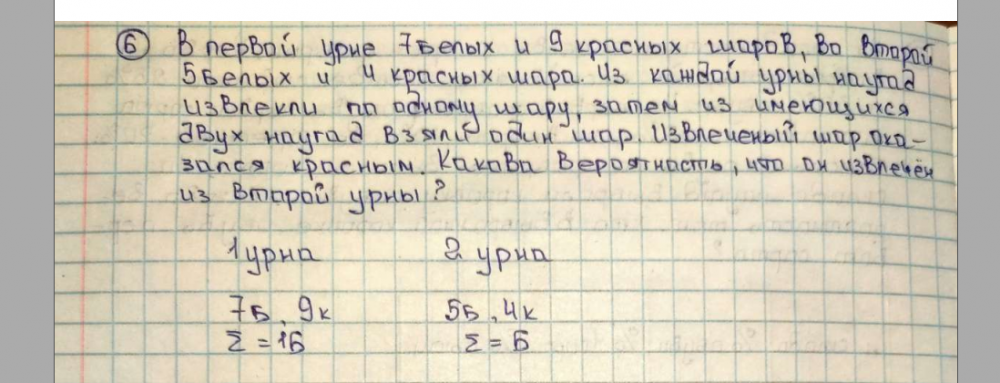 6 В первой урне 7 белых и 9 красных шаров, во второй
5 белых и 4 красных шара. Из каждой урны наугад
извлекли по одному шару, затем из имеющихся
двух наугад взяли один шар. Извлеченый шар ока-
зался красным. Какова вероятность, что он извлечён
из второй урны?
1 урна 2 урна
7Б, 9к 5Б, 4к
Σ = 16 Σ = Б